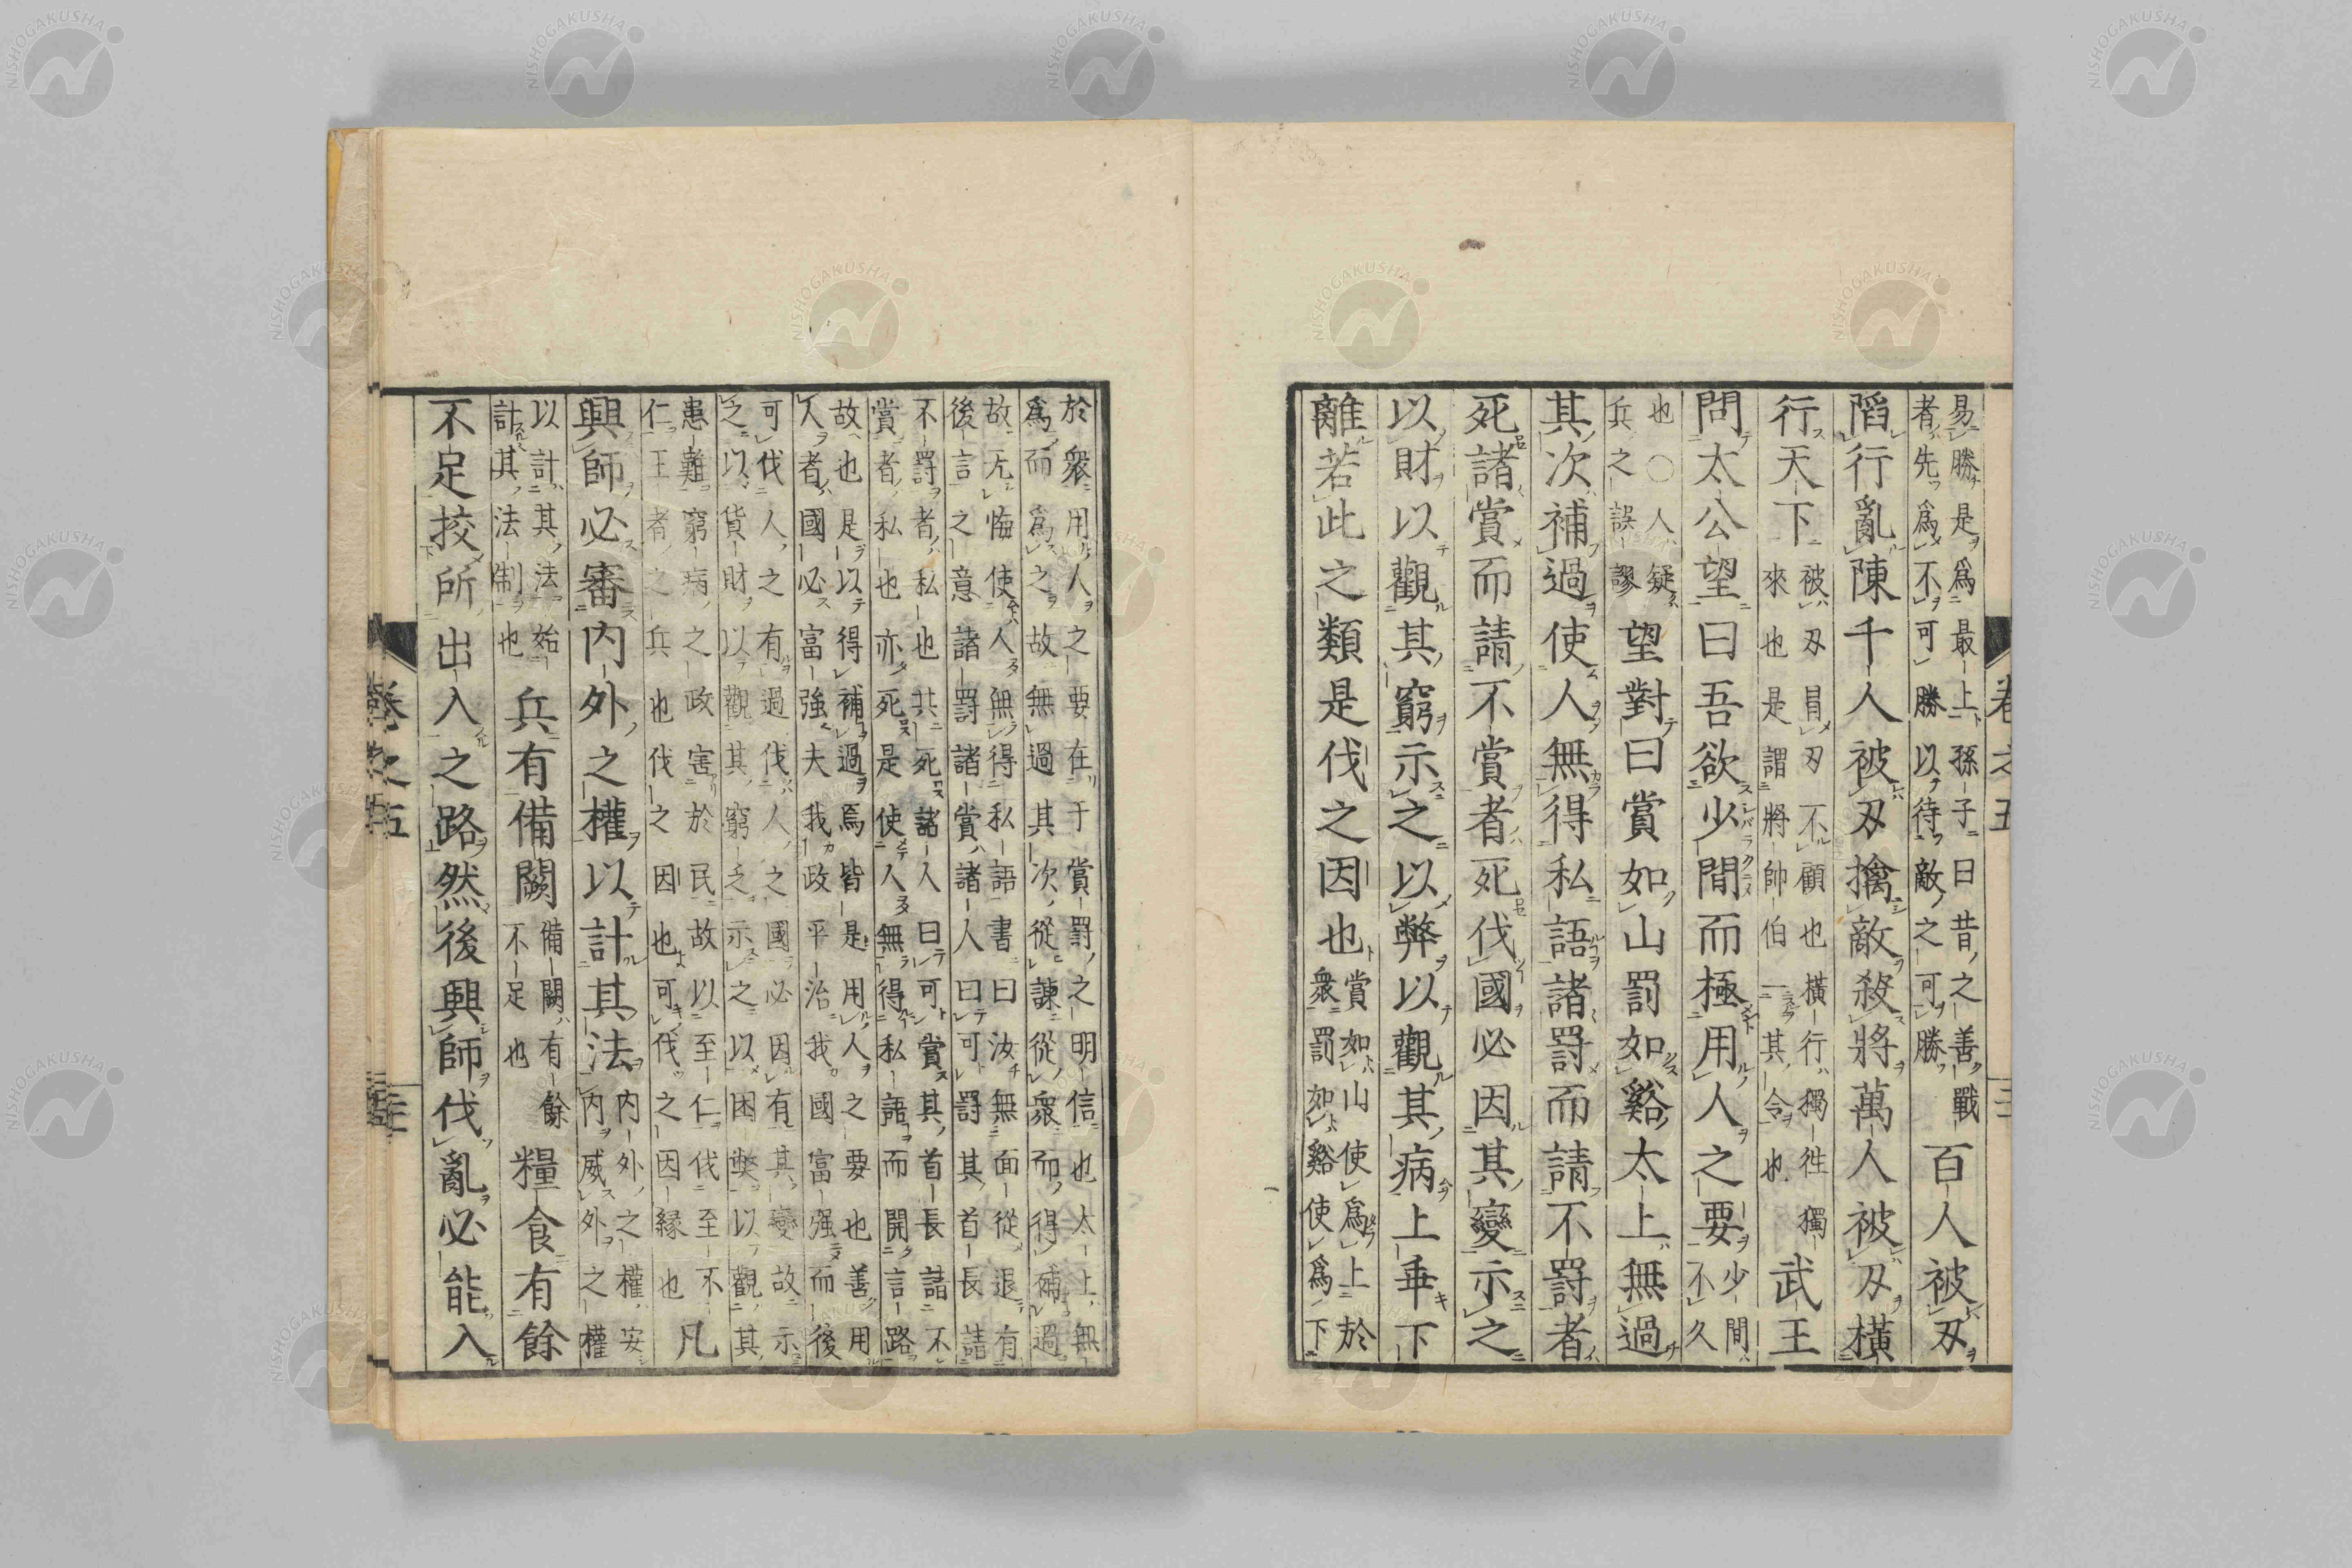 卷之五
易勝是爲最上孫子曰昔之善戰
者先爲不可勝以待敵之可勝
百人被刃
陷行亂陳千人被刃擒敵殺將萬人被刃橫
行天下
被刃冒刃不顧也橫行獨往獨
來也是謂將帥伯一其令也
武王
問太公望曰吾欲少間而極用人之要
少間
不久
也〇人疑
兵之誤謬
望對曰賞如山罰如谿太上無過
其次補過使人無得私語諸罰而請不罰者
死諸賞而請不賞者死伐國必因其變示之
以財以觀其窮示之以弊以觀其病上乖下
離若此之類是伐之因也
賞如山使爲上於
衆罰如谿使爲下
於衆用人之要在于賞罰之明信也太上無
爲而爲之故無過其次從諫從衆而得補過
故无悔使人無得私語書曰汝無面從退有
後言之意諸罰諸賞諸人曰可罰其首長詰
不罰者私也共死諸人曰可賞其首長詰不
賞者私也亦死是使人無得私語而開言路
故也是以得補過焉皆是用人之要也善用
人者國必富強夫我政平治我國富强而後
可伐人之有過伐人之國必因有其變故示
之以貨財以觀其窮乏示之以困獘以觀其
患難窮病之政害於民故以至仁伐至不
仁王者之兵也伐之因也可伐之因緣也
凡
興師必審内外之權以計其法
内外之權安
内威外之權
以計其法始
計其法制也
兵有備闕
備闕有餘
不足也
糧食有餘
不足挍所出入之路然後興師伐亂必能入
卷之五